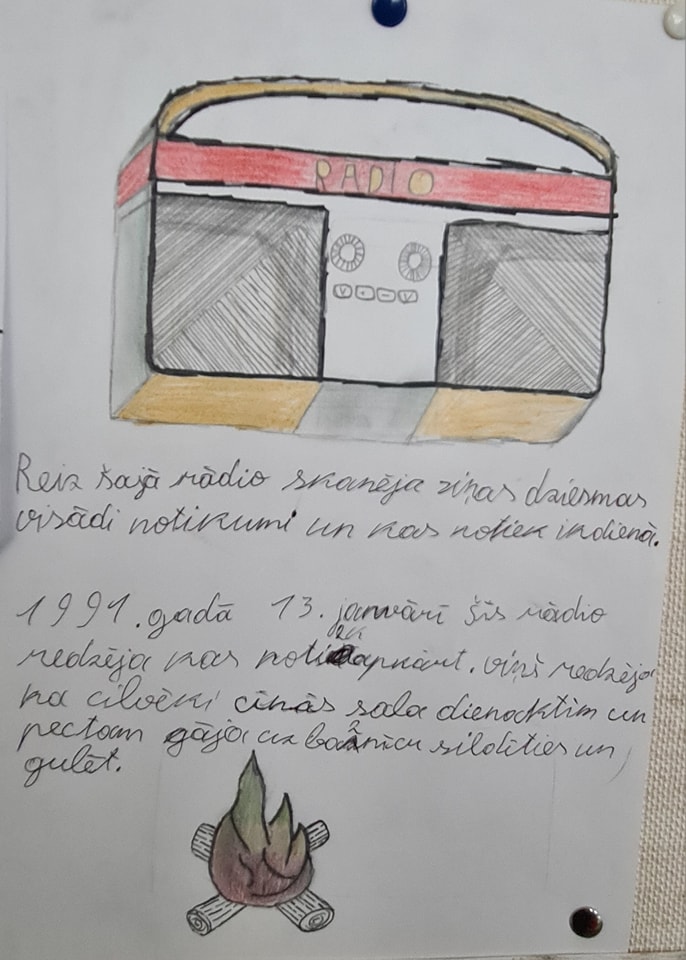 RADIO
Reiz šajā rādio skanēja ziņas dziesmas
visādi notikumi un kas notiek ikdienā.
1991. gadā 13. janvārī šis rādio
redzēja kas notiek apkārt. viņš redzēja
ka cilvēki cīnās sala dienocktīm un
pectam gāja uz baznīcu sildīties un
gulēt.